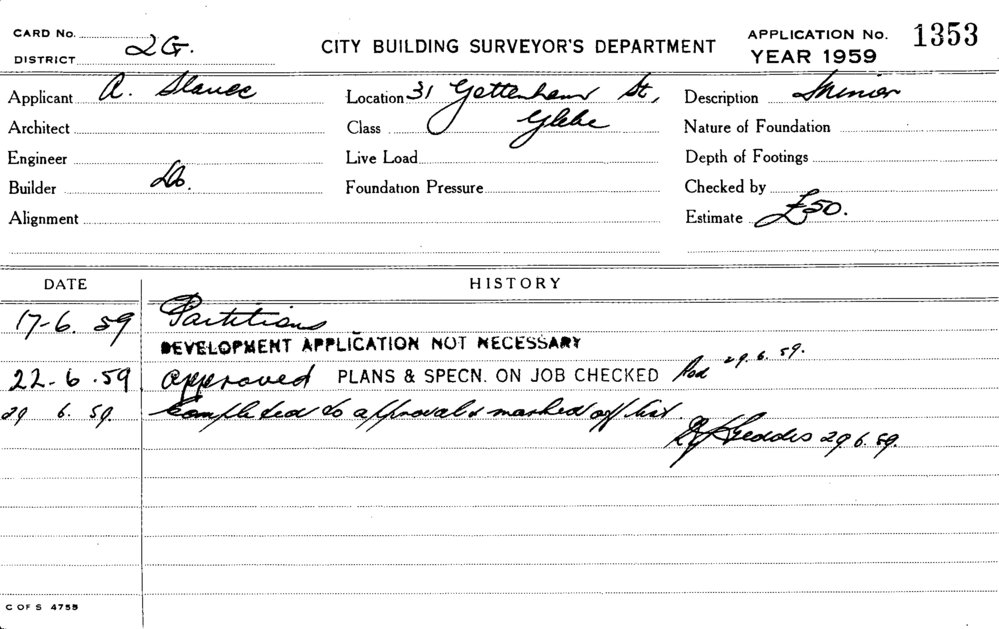 CARD No.
DISTRICT 2G.
CITY BUILDING SURVEYOR'S DEPARTMENT
APPLICATION No. 1353
YEAR 1959
Applicant A.
Location 31 Gottenham St,
Description Minor
Architect
Class Glebe
Nature of Foundation
Engineer
Live Load
Depth of Footings
Builder Do.
Foundation Pressure
Checked by
Alignment
Estimate £50.
DATE HISTORY
17-6. 59 Partitions
DEVELOPMENT APPLICATION NOT NECESSARY
22-6.59 Approved PLANS & SPECN. ON JOB CHECKED 29.6.59.
29 6. 59. Completed to approval & marked off list.
Geddes 29 6. 59.
C OF S 4755